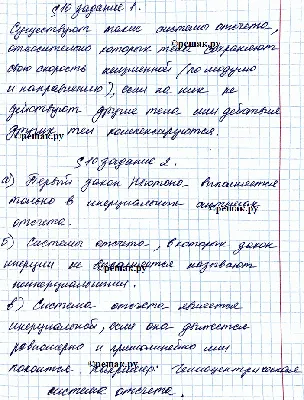 §10 задание 1.
Существуют такие системы отсчета,
относительно которых тела сохраняют
свою скорость неизменной (по модулю
и направлению), если на них не
действуют другие тела или действие
других тел компенсируются.
§10 задание 2.
а) Первый закон Ньютона выполняется
только в инерциальных системах
отсчета.
б) Системы отсчета, в которых закон
инерции не выполняется называют
неинерциальными.
в) Система отсчета является
инерциальной, если она движется
равномерно и прямолинейно или
покоится. Например: Гелиоцентрическая
система отсчета.
©решак.ру
©решак.ру
©решак.ру
©решак.ру
©решак.ру
©решак.ру